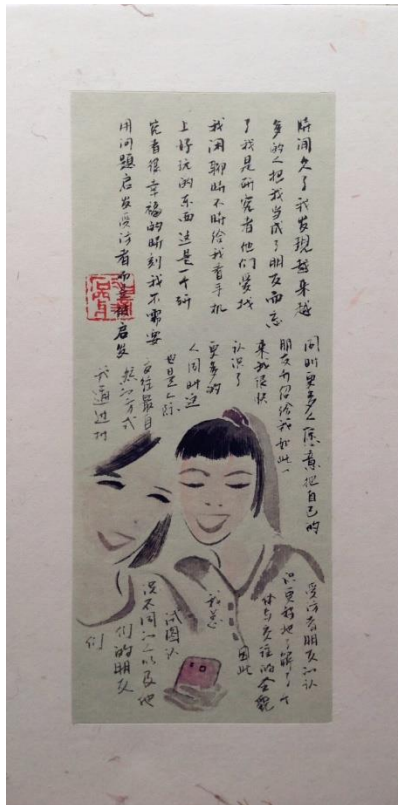 時间久了我发現越来越
多的人把我当成了朋友而忘
了我是研究者他们爱找
我闲聊時不時给我看手机
上好玩的东西这是一个研
究者很幸福的時刻我不需要
用问題启发受访者而是被启发
同时更多人愿意把自己的
朋友介绍给我如此一
来我很快
认识了
更多的
人同时这
也是人际
交往最自
然的方式
我通过对
受访者朋友的认
识更好地了解了个
体与交往的全貌
因此
我总
试图认
识不同的人以及他
们的朋友
们